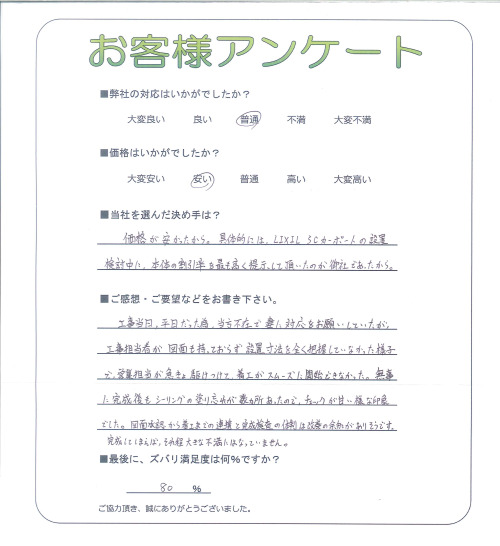 お客様アンケート
■弊社の対応はいかがでしたか？
大変良い 良い 普通 不満 大変不満
■価格はいかがでしたか？
大変安い 安い 普通 高い 大変高い
■当社を選んだ決め手は？
価格が安かったから。具体的には、LIXIL SCカーポートの設置
検討中に、本体の割引率を最も高く提示して頂いたのが御社であったから。
■ご感想・ご要望などをお書き下さい。
工事当日、平日だった為、当方不在で妻に対応をお願いしていたが、
工事担当者が図面も持っておらず設置寸法を全く把握していなかった様子
で、営業担当が急きょ駆けつけて、着工がスムーズに開始できなかった。無事
に完成後もシーリングの塗り忘れが数ヶ所あったので、チェックが甘い様な印象
でした。図面承認から着工までの連携と完成検査の体制は改善の余地がありそうです。
完成してしまえば、それ程大きな不満にはなっていません。
■最後に、ズバリ満足度は何％ですか？
80 ％
ご協力頂き、誠にありがとうございました。